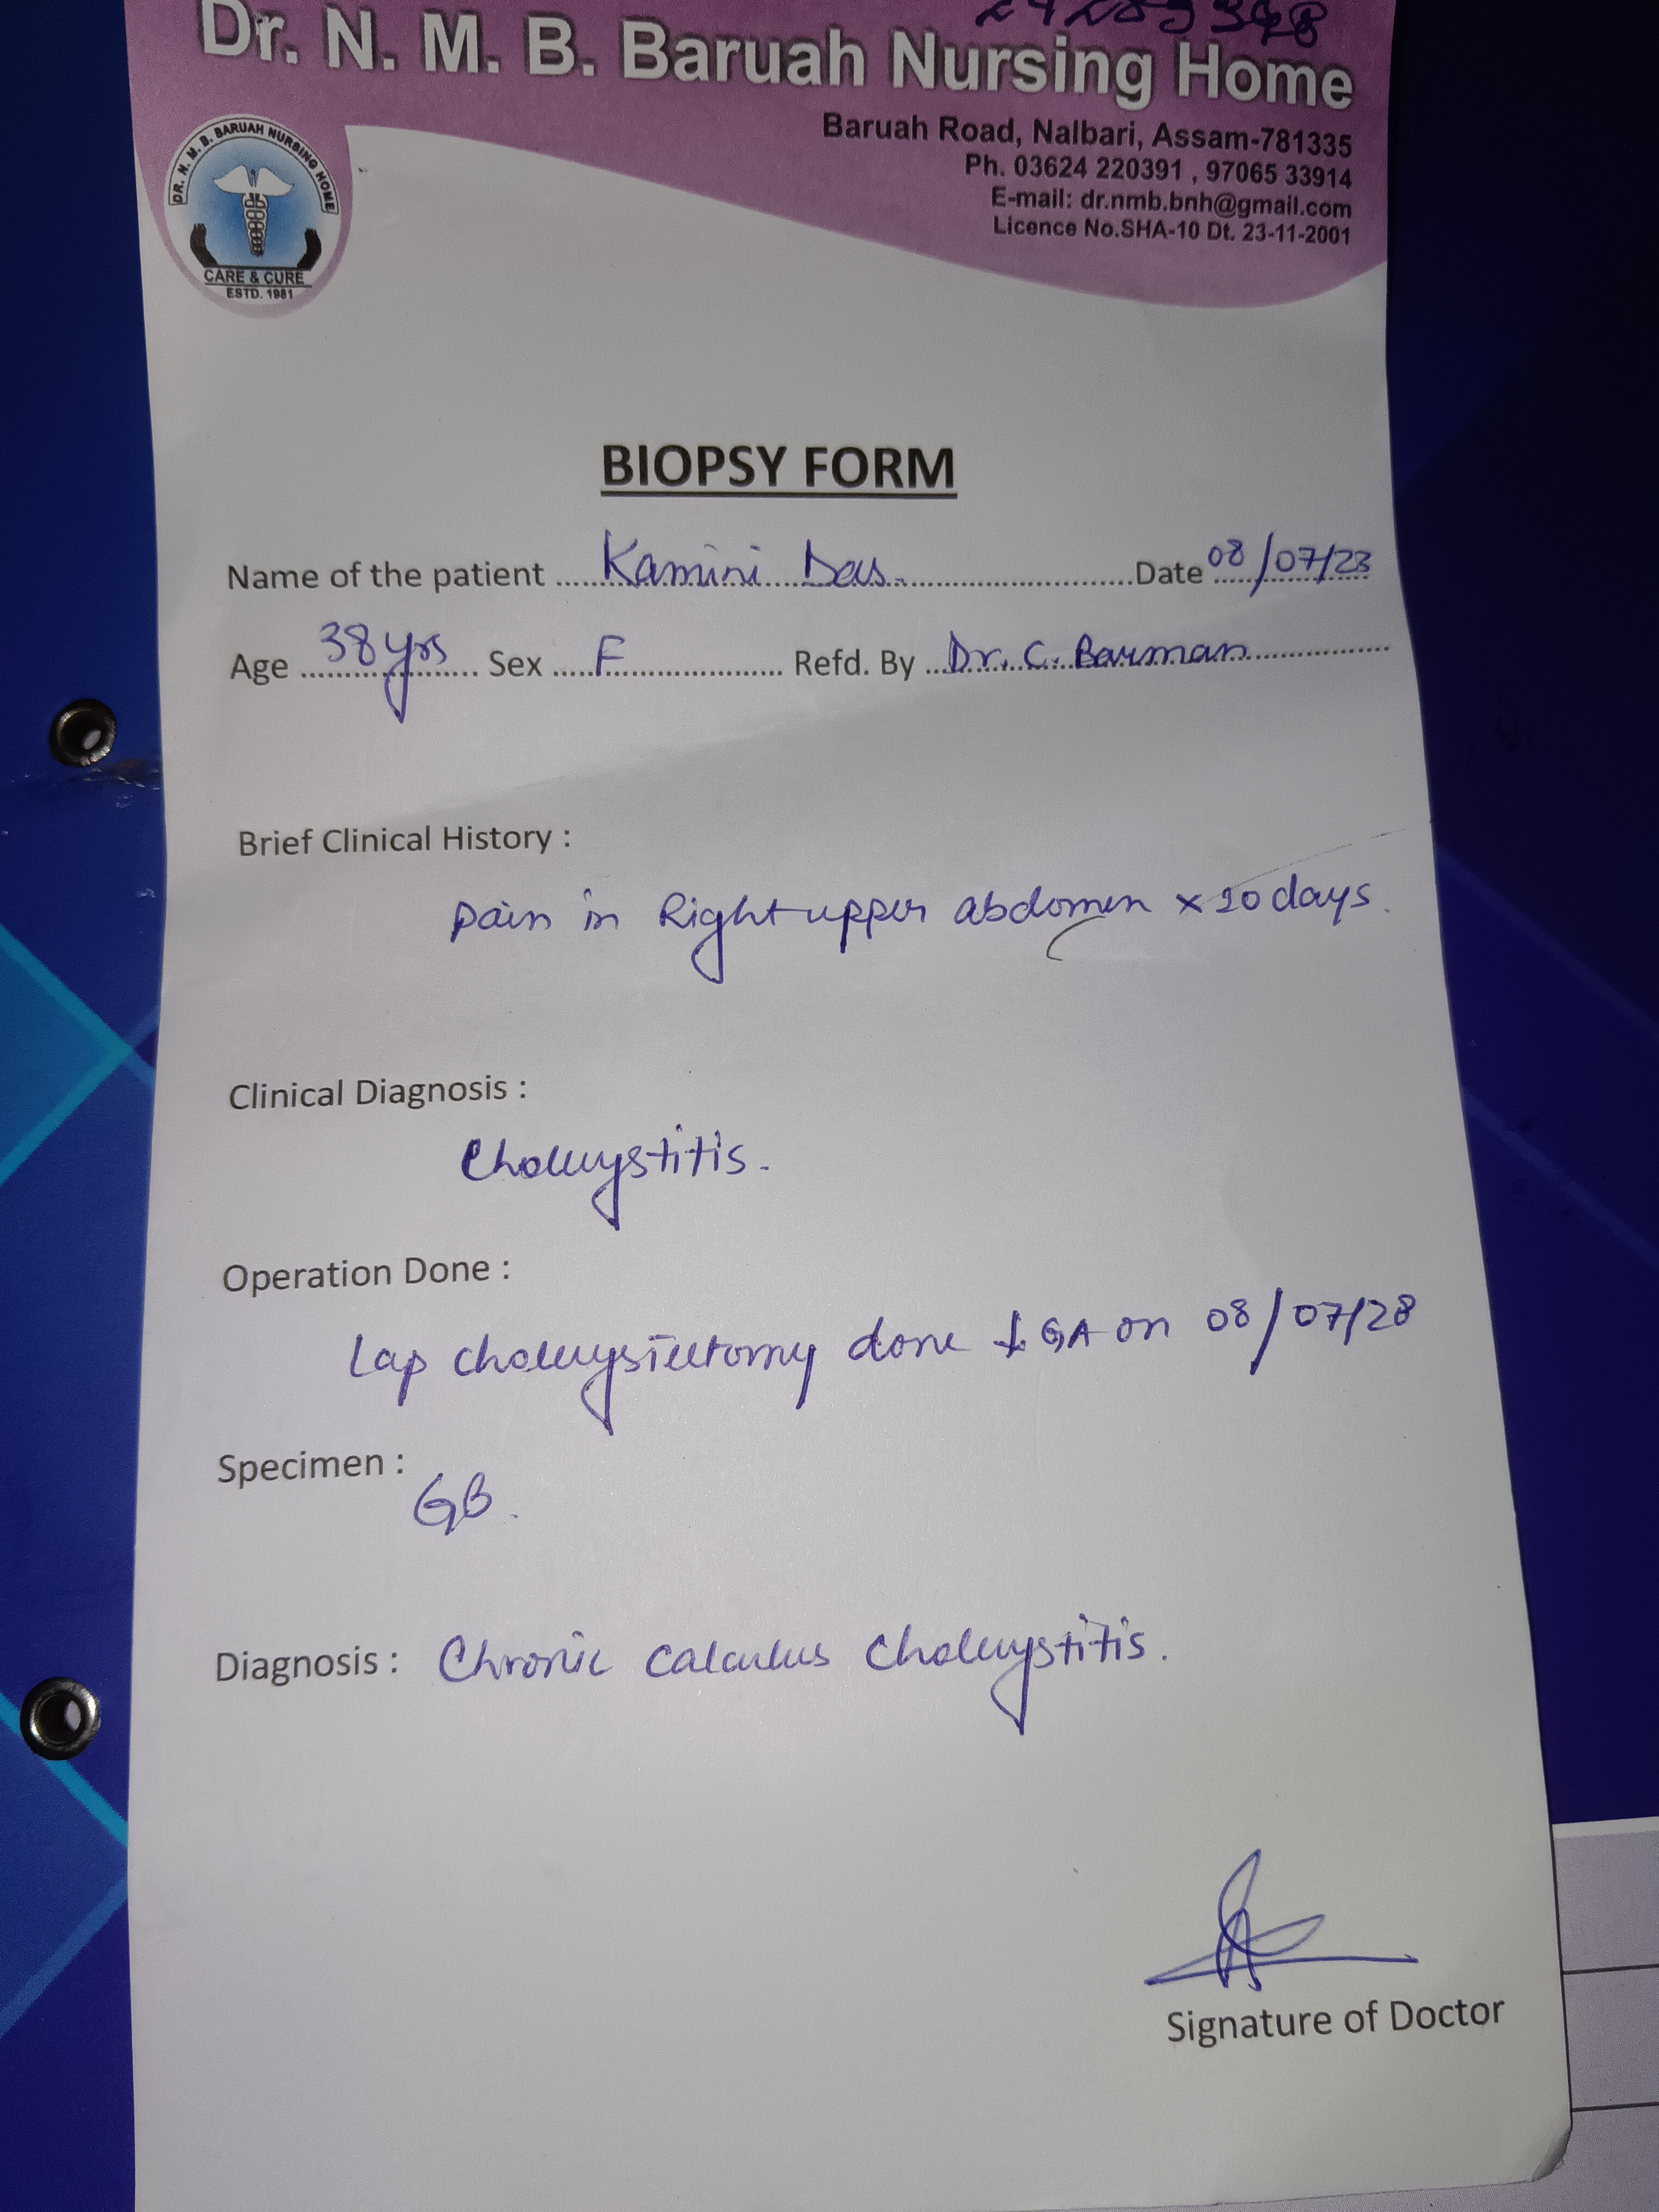 Dr. N. M. B. Baruah Nursing Home
Baruah Road, Nalbari, Assam-781335
Ph. 03624 220391 , 97065 33914
E-mail: dr.nmb.bnh@gmail.com
Licence No.SHA-10 Dt. 23-11-2001
DR. N. M. B. BARUAH NURSING HOME
CARE & CURE
ESTD. 1981
BIOPSY FORM
Name of the patient Kamini Das. Date 08/07/23
Age 38 yrs Sex F Refd. By Dr. C. Barman
Brief Clinical History :
Pain in Right upper abdomen x 20 days.
Clinical Diagnosis :
Cholecystitis.
Operation Done :
Lap cholecystectomy done GA on 08/07/23
Specimen :
GB.
Diagnosis : Chronic calculus cholecystitis.
Signature of Doctor